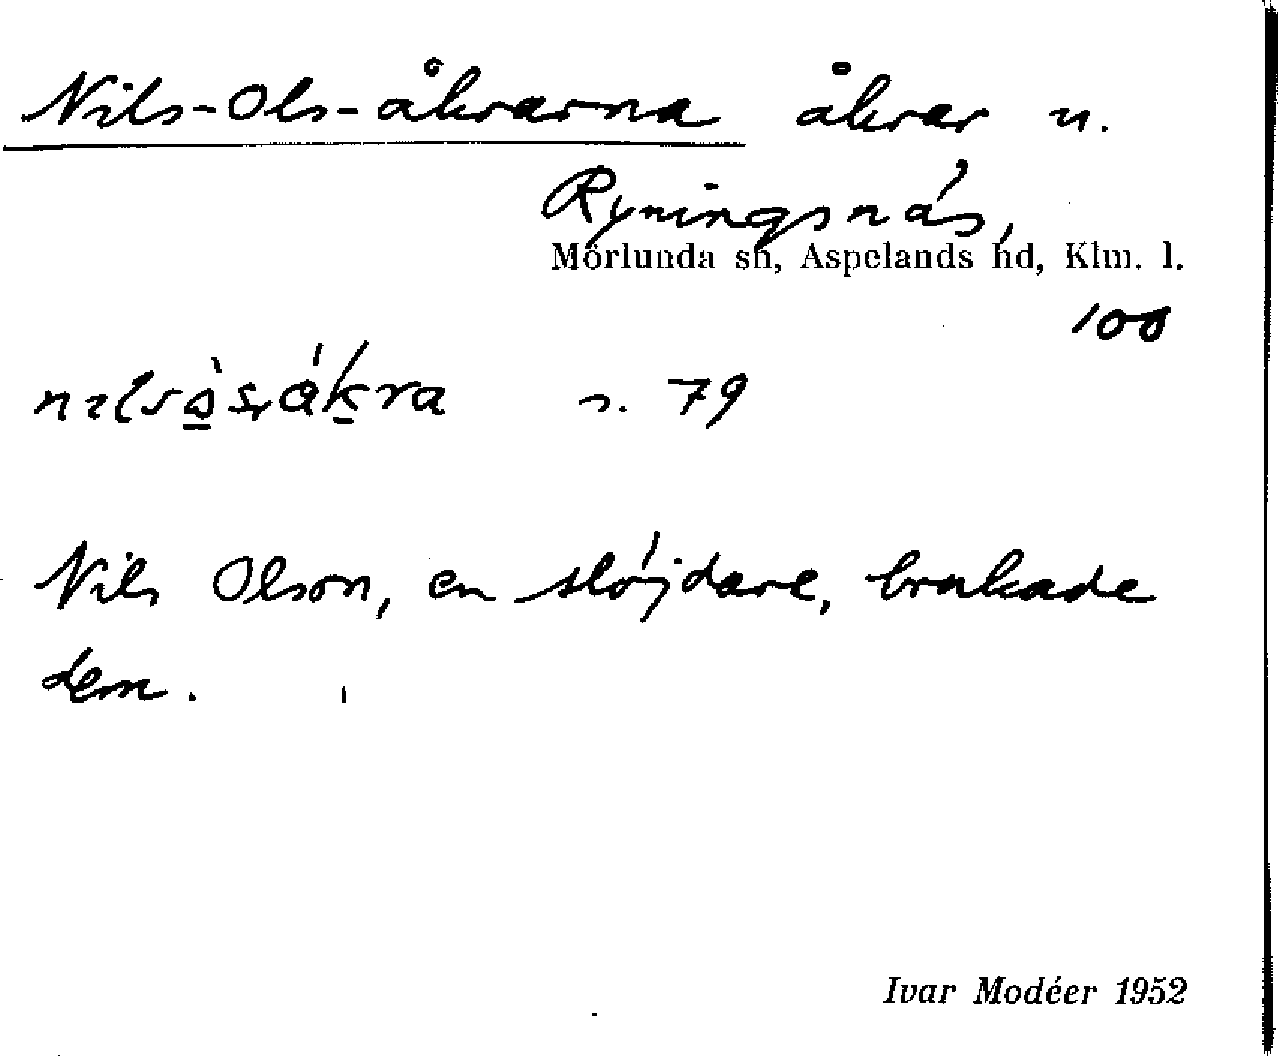 Nils-Ols-åkrarna åkrar u.
Ryningsnäs,
Mörlunda sn, Aspelands hd, Klm. l.
100
s. 79
Nils Olson, en slöjdare, brukade
dem.
Ivar Modéer 1952